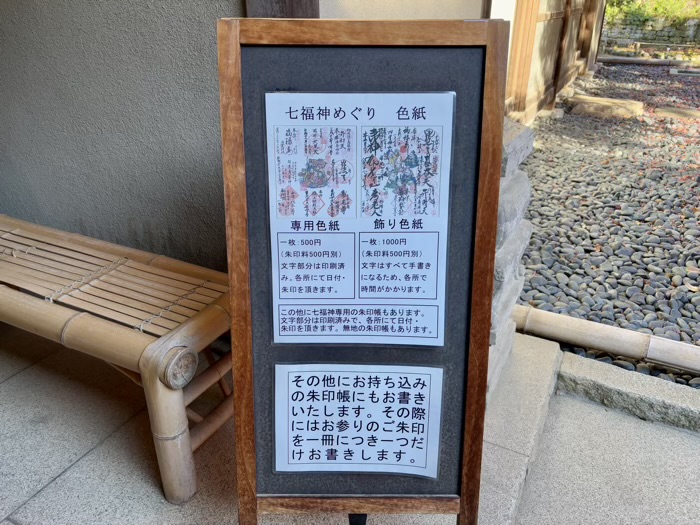 七福神めぐり 色紙
専用色紙
一枚：500円
（朱印料500円別）
文字部分は印刷済
み。各所にて日付・
朱印を頂きます。
飾り色紙
一枚：1000円
（朱印料500円別）
文字はすべて手書き
になるため、各所で
時間がかかります。
この他に七福神専用の朱印帳もあります。
文字部分は印刷済みで、各所にて日付・
朱印を頂きます。無地の朱印帳もあります。
その他にお持ち込み
の朱印帳にもお書き
いたします。その際
にはお参りのご朱印
を一冊につき一つだ
けお書きします。